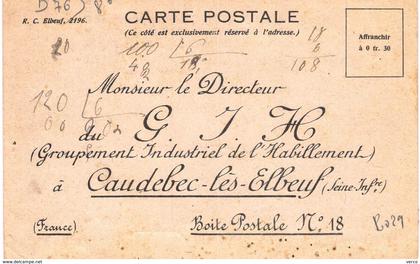 D 76) 8°
R. C. Elbeuf, 2196.
CARTE POSTALE
(Ce côté est exclusivement réservé à l'adresse.)
Affranchir
à 0 fr. 30
20
100 / 6
18
6
108
120 / 6
Monsieur le Directeur
du G. I. H
(Groupement Industriel de l'Habillement)
à Caudebec-lès-Elbeuf (Seine-Infre)
(France)
Boîte Postale N° 18